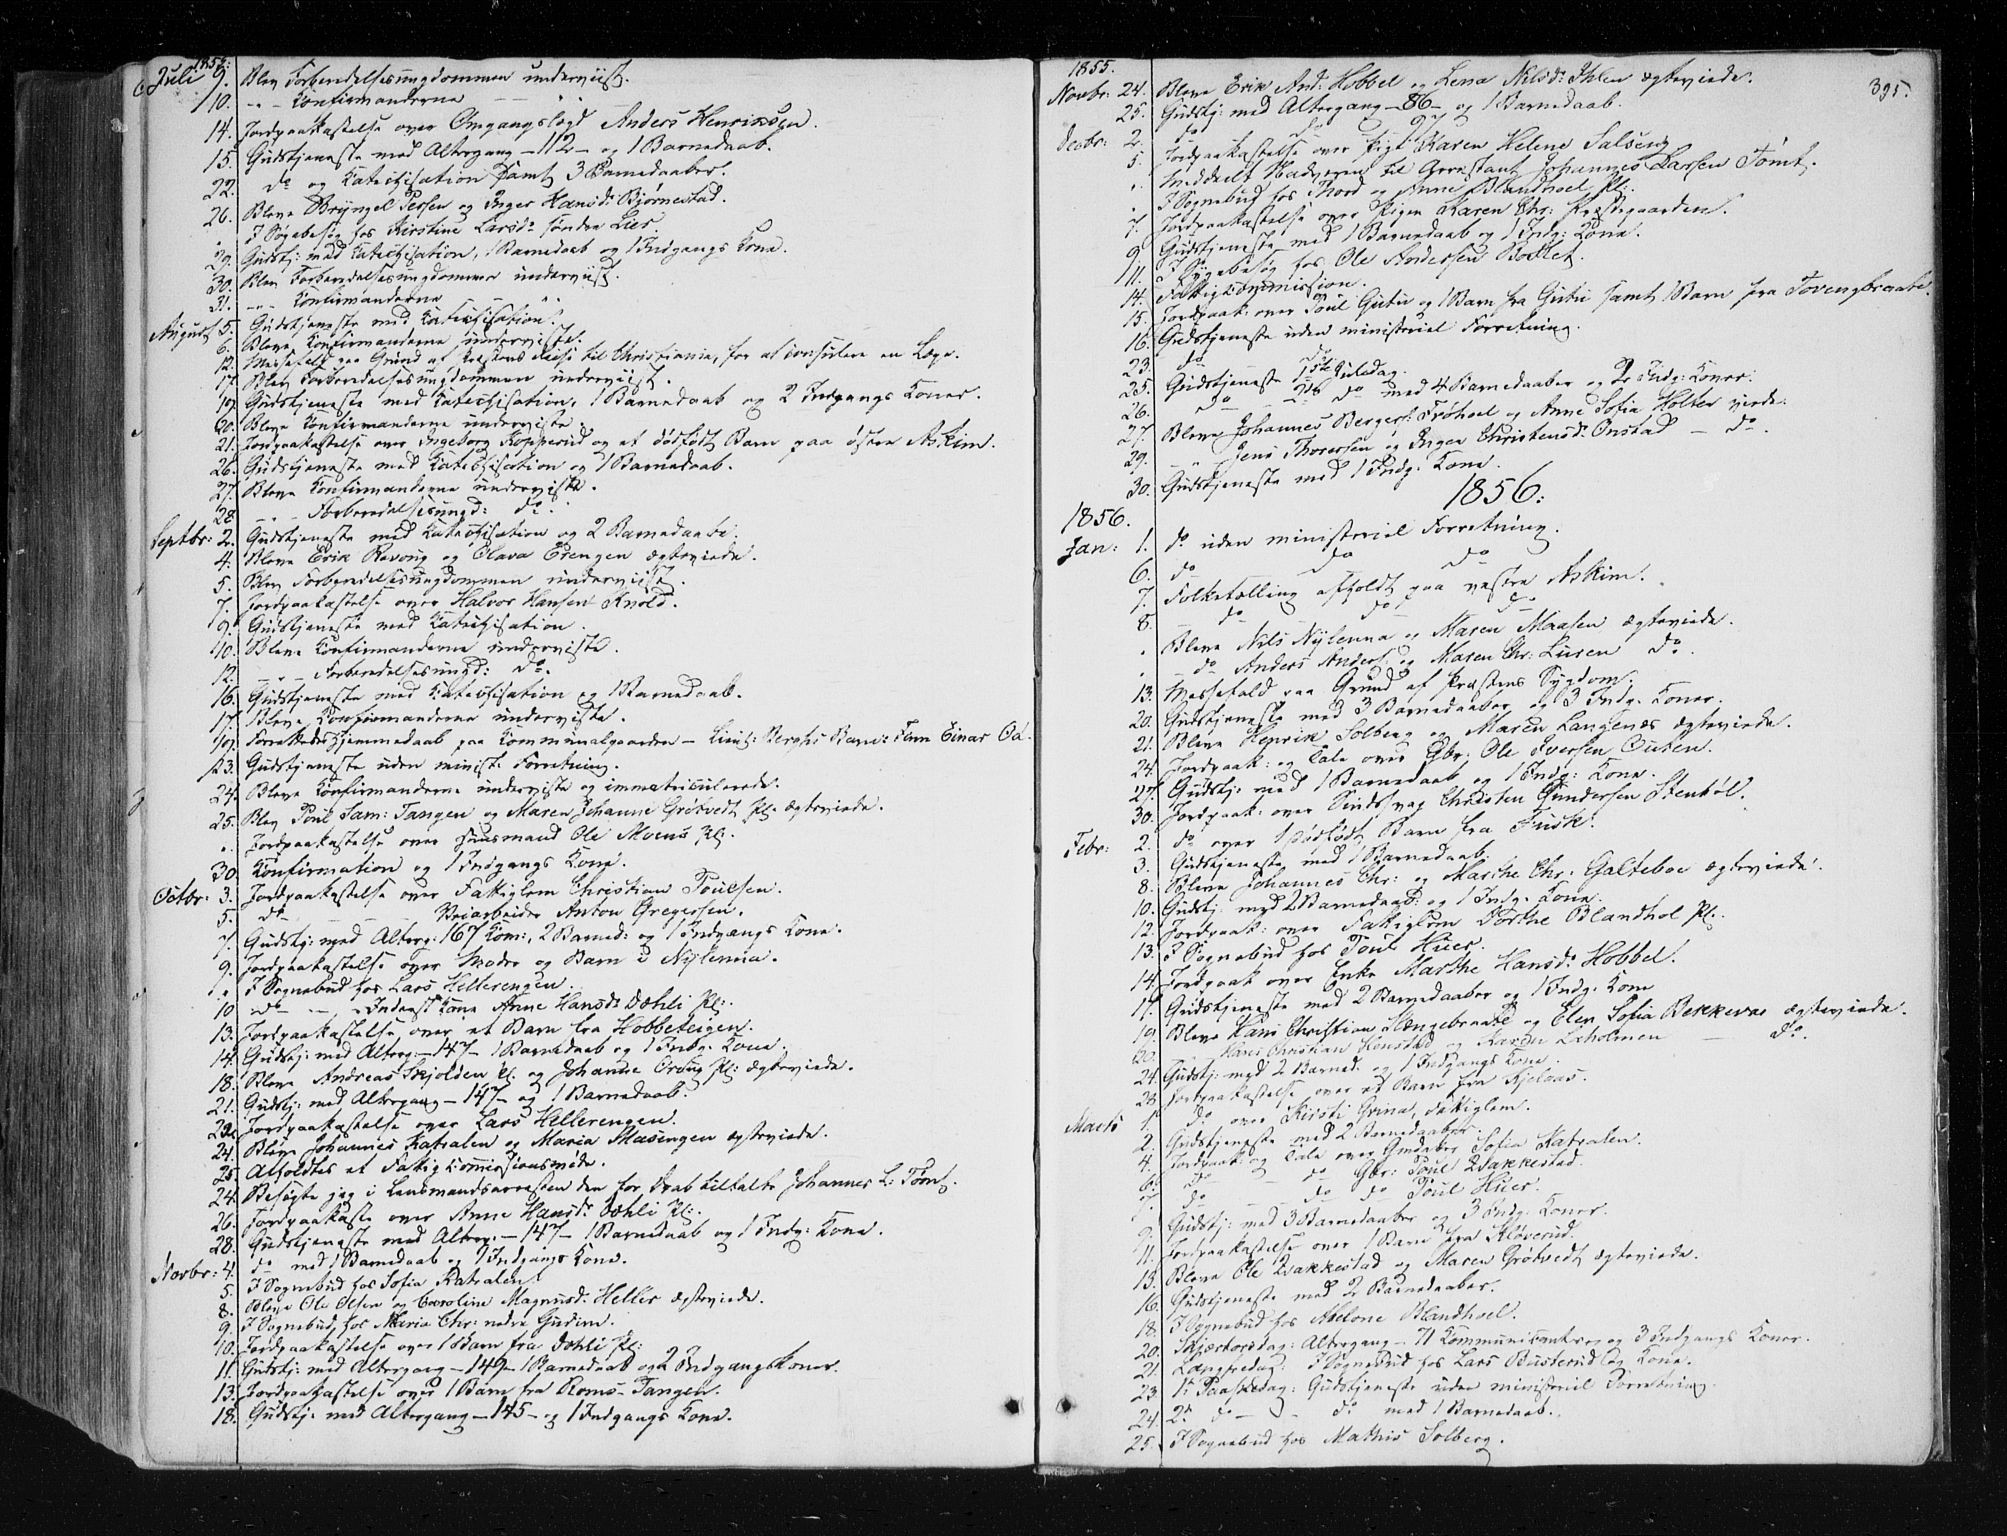 1855.
Juli 9. Blev Forberedelsesungdommen underviist.
10. " - Konfirmanderne - "
14. Jordpaakastelse over Omgangslægd Anders Henriksen.
15. Gudstjeneste med Altergang - 112 - og 1 Barnedaab.
22. do og Katechisation samt 3 Barnedaaber.
26. Bleve Bryngel Persen og Inger Hansdr Bjørnestad.
" I Sygebesøg hos Kirstine Larsdr søndre Lier.
29. Gudstj: med Katechisation, 1 Barnedaab og 1 Indgangs Kone.
30. Blev Forberedelsesungdommen underviist.
31. " " Konfirmanderne " "
August 5. Gudstjeneste med Katechisation.
6. Bleve Konfirmanderne underviste.
12. Messefald paa Grund af Præstens Reise til Christiania, for at consulere en Læge.
17. Blev Forberedelsesungdommen underviist.
19. Gudstjeneste med Katechisation, 1 Barnedaab og 2 Indgangs Koner.
20. Bleve Konfirmanderne underviste
21. Jordpaakastelse over Ingeborg Kopperud og et dødfødt Barn paa østre Askim.
26. Gudstjeneste med Katechisation og 1 Barnedaab.
27. Bleve Konfirmanderne underviste.
28. " - Forberedelsesungd: do.
Septbr: 2. Gudstjeneste med Katechisation og 2 Barnedaabe.
4. Bleve Erik Revoug og Olava Erengen ægteviede.
5. Blev Forberedelsesungdommen underviist.
7. Jordpaakastelse over Halvor Hansen Knold.
9. Gudstjeneste med Katechisation.
10. Bleve Konfirmanderne underviste.
12. - " - Forberedelsesungd: do.
16. Gudstjeneste med Katechisation og 1 Barnedaab.
17. Bleve Konfirmanderne underviste.
19. Forrettedes Hjemmedaab paa Kommunalgaarden - Lieut: Berghs Barn: Finn Einar Od.
23. Gudstjeneste uden minist: Forretning.
24. Bleve Konfirmanderne underviste og immatriculerede.
25. Blev Poul Sam: Tangen og Maren Johanne Grøtvedt Pl: ægteviede.
" Jordpaakastelse over Huusmand Ole Moens Pl:.
30. Konfirmation og 1 Indgangs Kone.
Octbr: 3. Jordpaakastelse over Fattiglem Christian Poulsen.
5. do - - - Veiarbeider Anton Gregersen.
7. Gudstj: med Alterg: 167 Kom:, 2 Barned: og 1 Indgangs Kone.
9. Jordpaakastelse over Moder og Barn i Nylenna.
" I Sognebud hos Lars Hellerengen.
10. do - - Inderst Kone Anne Hansdr Dæhli Pl:.
13. Jordpaakastelse over et Barn fra Hobbeteigen.
14. Gudstj: med Alterg: - 147 - 1 Barnedaab og 1 Indg: Kone.
18. Bleve Andreas Skjolden Pl. og Johanne Ording Pl: ægteviede.
21. Gudstj: med Altergang - 147 - og 1 Barnedaab.
22. Jordpaakastelse over Lars Hellerengen.
24. Bleve Johannes Katralen og Maria Masingen ægteviede.
25. Afholdtes et Fattigkommissionsmøde.
24. Besøgte jeg i Lensmandsarresten den for Drab tiltalte Johannes L: Tømt.
26. Jordpaakaste over Anne Hansdr Dæhli Pl:.
28. Gudstjeneste med Alterg: - 147 - 1 Barnedaab og 1 Indg: Kone.
Novbr: 4. do med 1 Barnedaab og 1 Indgangs Kone.
5. I Sognebud hos Sofia Katralen.
8. Bleve Ole Olsen og Caroline Magnusd: Heller ægteviede.
9. I Sognebud hos Maria Chr: nedre Gudim.
10. Jordpaakastelse over 1 Barn fra Dæhli Pl:
11. Gudstj: med Altergang - 149 - 1 Barnedaab og 2 Indgangskoner.
13. Jordpaakastelse over 1 Barn fra Roms-Tangen.
18. Gudstj: med Altergang - 145 - og 1 Indgangs Kone.
1855. 395.
Novbr: 24. Bleve Erik And: Hobbel og Lena Nilsd: Ihlen ægteviede.
25. Gudstj: med Altergang - 86 - og 1 Barnedaab.
Decbr: 2. do do 97
5. Jordpaakastelse over Pige Karen Helene Salseng
" Meddeelt Nadveren til Arrestant Johannes Larsen Tømt.
" I Sognebud hos Thord og Anne Blandhoel Pl:.
7. Jordpaakastelse over Pigen Karen Chr: Præstegaarden.
9. Gudstjeneste med 1 Barnedaab og 1 Indg: Kone.
11. I Sygebesøg hos Ole Andersen Bollet.
14. Fattigkommission.
15. Jordpaak: over Poul Gutu og 1 Barn fra Gutu samt 1 Barn fra Tovengbraate.
16. Gudstjeneste uden ministeriel Forretning.
23. do do
25. Gudstjeneste 1ste Juledag.
26. do 2de do med 4 Barnedaaber og 2 Indg: Koner.
27. Bleve Johannes Berger: Frøhoel og Anne Sofia Holter viede.
29. " " Jens Thoresen og Inger Christensdr Onstad - do.
30. Gudstjeneste med 1 Indg: Kone.
1856:
1856.
Jan: 1. do uden ministeriel Forretning.
6. do do do
7. Folketælling afholdt paa vestre Askim.
8. do do do
" Bleve Nils Nylenna og Maren Maalen ægteviede.
" do Anders Anders: og Maren Chr: Luren do.
13. Messefald paa Grund af Præstens Sygdom.
20. Gudstjeneste med 3 Barnedaaber og 3 Indg: Koner.
21. Bleve Henrik Solberg og Maren Langenes ægteviede.
24. Jordpaak: og Tale over Gbr: Ole Iversen Outen.
27. Gudstj: med 1 Barnedaab og 1 Indg: Kone.
30. Jordpaak: over Sindssvag Christen Gundersen Stenbøl.
Febr: 2. do over 1 dødfødt Barn fra Fusk.
3. Gudstjeneste med 1 Barnedaab.
8. Bleve Johannes Chr: og Marthe Chr: Galteboe ægteviede.
10. Gudstj: med 2 Barnedaab: og 1 Indg: Kone.
12. Jordpaak: over Fattiglem Dorthe Blandhol Pl:.
13. I Sognebud hos Poul Huer.
14. Jordpaak over Enke Marthe Hansdr Hobbel.
17. Gudstjeneste med 2 Barnedaaber og 1 Indg: Kone
19. Bleve Hans Christian Slengebraate og Elen Sofia Bekkevar ægteviede.
20. - Hans Christian Honstad og Karen Lexholmen - do.
24. Gudstj: med 2 Barned: og 1 Indgangs Kone.
28. Jordpaakastelse over et Barn fra Kjelaas.
Marts 1. do over Kirsti Grina, Fattiglem.
2. Gudstjeneste med 2 Barnedaaber.
4. Jordpaak: og Tale over Gmdaber Sofia Katralen.
6. do - do Gbr: Poul Vakkestad.
7. do do do Poul Huer.
9. Gudstj: med 3 Barnedaaber og 3 Indg: Koner.
11. Jordpaakastelse over 1 Barn fra Kløverud.
13. Bleve Ole Vakkestad og Maren Grøtvedt ægteviede.
16. Gudstjeneste med 2 Barnedaaber.
18. I Sognebud hos Malene Blandhoel.
20. Skjærtorsdag: Altergang - 71 Kommunikanter og 3 Indgangs Koner.
21. Langfredag: I Sognebud hos Lars Busterud og Kone.
23. 1ste Paaskedag: Gudstjeneste uden ministeriel Forretning.
24. 2den do - - do med 1 Barnedaab.
25. I Sognebud hos Mathis Solberg.